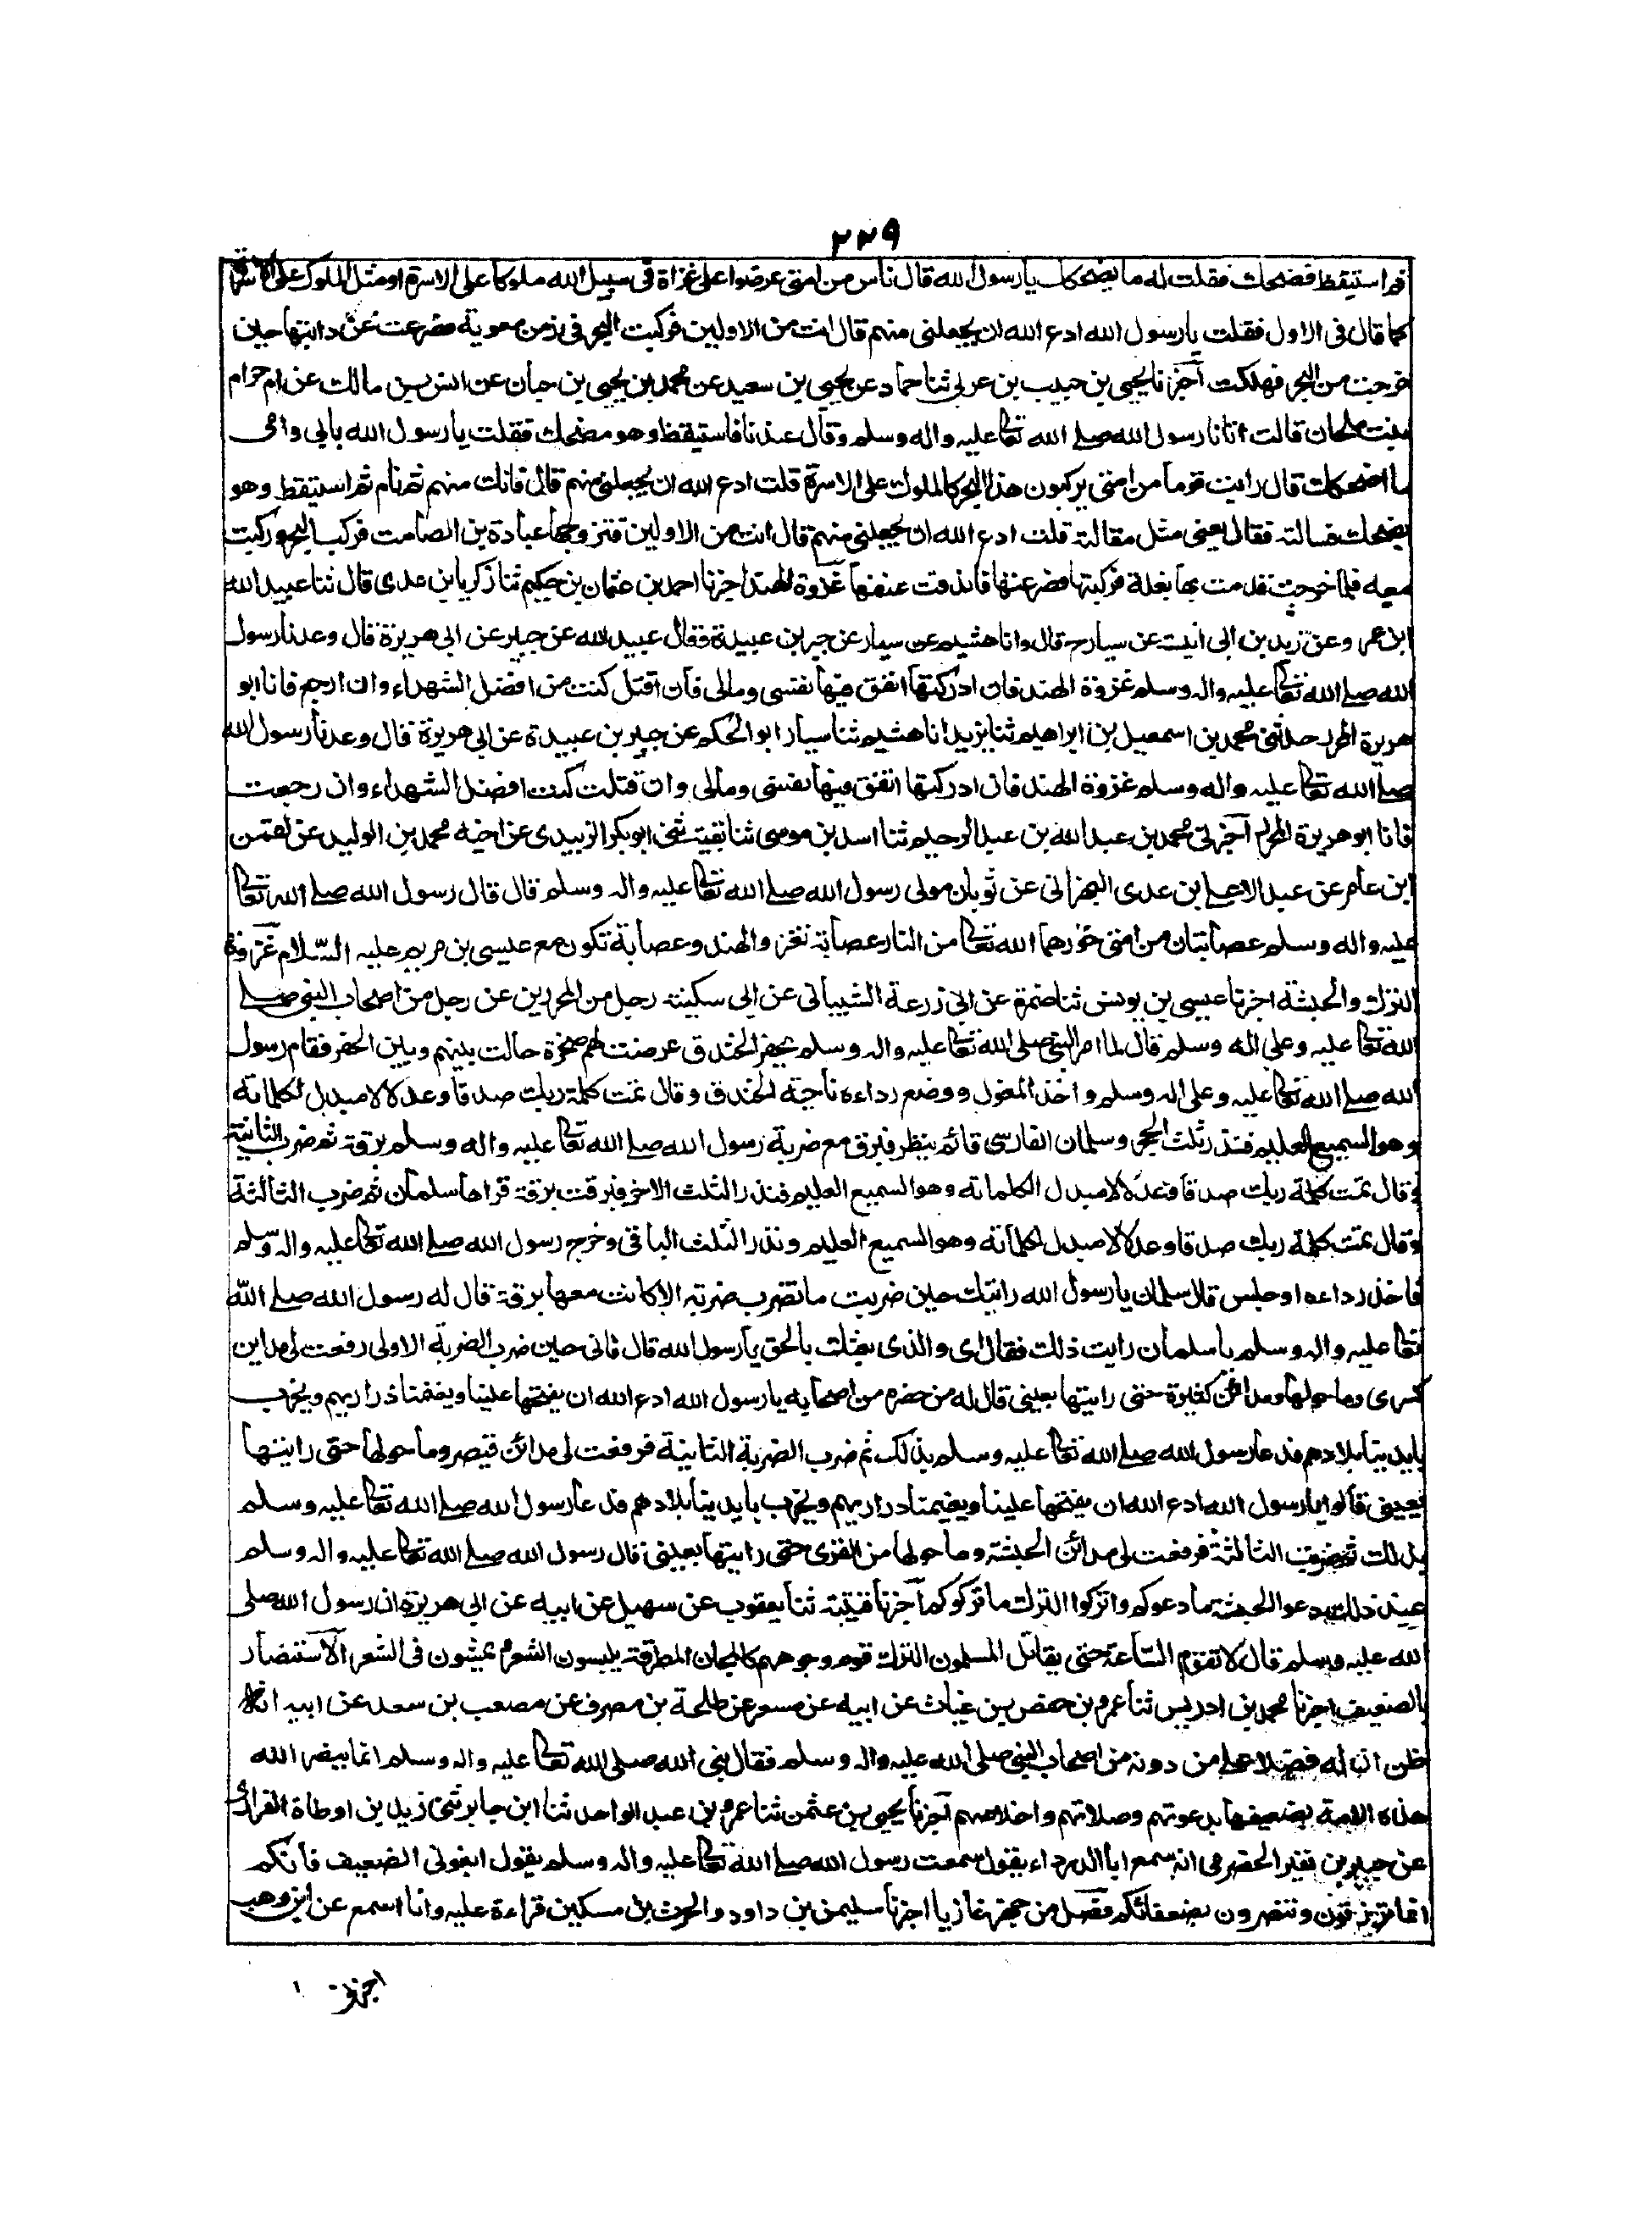 ٢٢٩
ثم استيقظ فضحك فقلت له ما يضحكك يا رسول الله قال ناس من امتي عرضوا على غزاة في سبيل الله ملوكا على الاسرة او مثل الملوك على الاسرة
كما قال في الاول فقلت يا رسول الله ادع الله ان يجعلني منهم قال انت من الاولين فركبت البحر في زمن معوية فصرعت عن دابتها حين
خرجت من البحر فهلكت اخبرنا يحيى بن حبيب بن عربي ثنا حماد عن يحيى بن سعيد عن محمد بن يحيى بن حبان عن انس بن مالك عن ام حرام
بنت ملحان قالت اتانا رسول الله صلى الله تعالى عليه واله وسلم وقال عندنا فاستيقظ وهو يضحك فقلت يا رسول الله بابي وامي
ما اضحكك قال رايت قوما من امتي يركبون هذا البحر كالملوك على الاسرة قلت ادع الله ان يجعلني منهم قال فانك منهم ثم نام ثم استيقظ وهو
يضحك فسالته فقال يعني مثل مقالته قلت ادع الله ان يجعلني منهم قال انت من الاولين فتزوجها عبادة بن الصامت فركب البحر وركبت
معه فلما خرجت قدمت بها بغلة فركبتها فصرعتها فاندقت عنقها غزوة الهند اخبرنا احمد بن عثمان بن حكيم ثنا زكريا بن عدى قال ثنا عبيد الله
ابن عمر وعن زيد بن ابى انيسة عن سيار ح قال وانا هشيم عن سيار عن جبر بن عبيدة فقال عبيد الله عن جبير عن ابي هريرة قال وعدنا رسول
الله صلى الله تعالى عليه واله وسلم غزوة الهند فان ادركتها انفق فيها نفسي ومالى فان اقتل كنت من افضل الشهداء وان ارجع فانا ابو
هريرة المحرر حدثني محمد بن اسمعيل بن ابراهيم ثنا يزيد انا هشيم ثنا سيار ابو الحكم عن جبير بن عبيدة عن ابي هريرة قال وعدنا رسول الله
صلى الله تعالى عليه واله وسلم غزوة الهند فان ادركتها انفق فيها نفسي ومالى وان قتلت كنت افضل الشهداء وان رجعت
فانا ابو هريرة المحرر اخبرني محمد بن عبد الله بن عبد الرحيم ثنا اسد بن موسى ثنا بقية ثني ابو بكر الزبيدى عن اخيه محمد بن الوليد عن لقمن
ابن عامر عن عبد الاعلى بن عدى البهراني عن ثوبان مولى رسول الله صلى الله تعالى عليه واله وسلم قال قال رسول الله صلى الله تعالى
عليه واله وسلم عصابتان من امتي حررهما الله تعالى من النار عصابة تغزو الهند وعصابة تكون مع عيسى بن مريم عليه السلام غزوة
الترك والحبشة اخبرنا عيسى بن يونس ثنا ضمرة عن ابي زرعة الشيباني عن ابي سكينة رجل من المحررين عن رجل من اصحاب النبي صلى
الله تعالى عليه وعلى اله وسلم قال لما امر النبي صلى الله تعالى عليه واله وسلم بحفر الخندق عرضت لهم صخرة حالت بينهم وبين الحفر فقام رسول
الله صلى الله تعالى عليه وعلى اله وسلم واخذ المعول ووضع رداءه ناحية الخندق وقال تمت كلمة ربك صدقا وعدلا لا مبدل لكلماته
وهو السميع العليم فندر ثلث الحجر وسلمان الفارسي قائم ينظر فبرق مع ضربة رسول الله صلى الله تعالى عليه واله وسلم برقة ثم ضرب الثانية
وقال تمت كلمة ربك صدقا وعدلا لا مبدل لكلماته وهو السميع العليم فندر الثلث الاخر فبرقت برقة فراها سلمان ثم ضرب الثالثة
وقال تمت كلمة ربك صدقا وعدلا لا مبدل لكلماته وهو السميع العليم وندر الثلث الباقى وخرج رسول الله صلى الله تعالى عليه واله وسلم
فاخذ رداءه او جلس قال سلمان يا رسول الله رايتك حين ضربت ما تضرب ضربة الا كانت معها برقة قال له رسول الله صلى الله
تعالى عليه واله وسلم يا سلمان رايت ذلك فقال اى والذى بعثك بالحق يا رسول الله قال فانى حين ضرب الضربة الاولى رفعت لى مداين
كسرى وما حولها ومدائن كثيرة حتى رايتها بعيني قال له من حضره من اصحابه يا رسول الله ادع الله ان يفتحها علينا ويغنمنا ذراريهم ويخرب
بايدينا بلادهم فدعا رسول الله صلى الله تعالى عليه وسلم بذلك ثم ضرب الضربة الثانية فرفعت لى مدائن قيصر وما حولها حتى رايتها
بعيني قالوا يا رسول الله ادع الله ان يفتحها علينا ويغنمنا ذراريهم ويخرب بايدينا بلادهم فدعا رسول الله صلى الله تعالى عليه وسلم
بذلك ثم ضربت الثالثة فرفعت لى مدائن الحبشة وما حولها من القرى حتى رايتها بعيني قال رسول الله صلى الله تعالى عليه واله وسلم
عند ذلك دعوا الحبشة ما دعوكم واتركوا الترك ما تركوكم اخبرنا قتيبة ثنا يعقوب عن سهيل عن ابيه عن ابي هريرة ان رسول الله صلى
الله عليه وسلم قال لا تقوم الساعة حتى يقاتل المسلمون الترك قوم وجوههم كالمجان المطرقة يلبسون الشعر ويمشون في الشعر الاستنصار
بالضعيف اخبرنا محمد بن ادريس ثنا عمر بن حفص بن غياث عن ابيه عن مسعر عن طلحة بن مصرف عن مصعب بن سعد عن ابيه انه
ظن ان له فضلا على من دونه من اصحاب النبي صلى الله عليه واله وسلم فقال نبي الله صلى الله تعالى عليه واله وسلم انما ينصر الله
هذه الامة بضعيفها بدعوتهم وصلاتهم واخلاصهم اخبرنا يحيى بن عثمن ثنا عمر بن عبد الواحد ثنا ابن جابر ثني زيد بن اوطاة الفزارى
عن جبير بن نفير الحضرمى انه سمع ابا الدرداء يقول سمعت رسول الله صلى الله تعالى عليه واله وسلم يقول ابغونى الضعيف فانكم
انما ترزقون وتنصرون بضعفائكم فضل من جهز غازيا اخبرنا سليمن بن داود والحرث بن مسكين قراءة عليه وانا اسمع عن ابن وهب